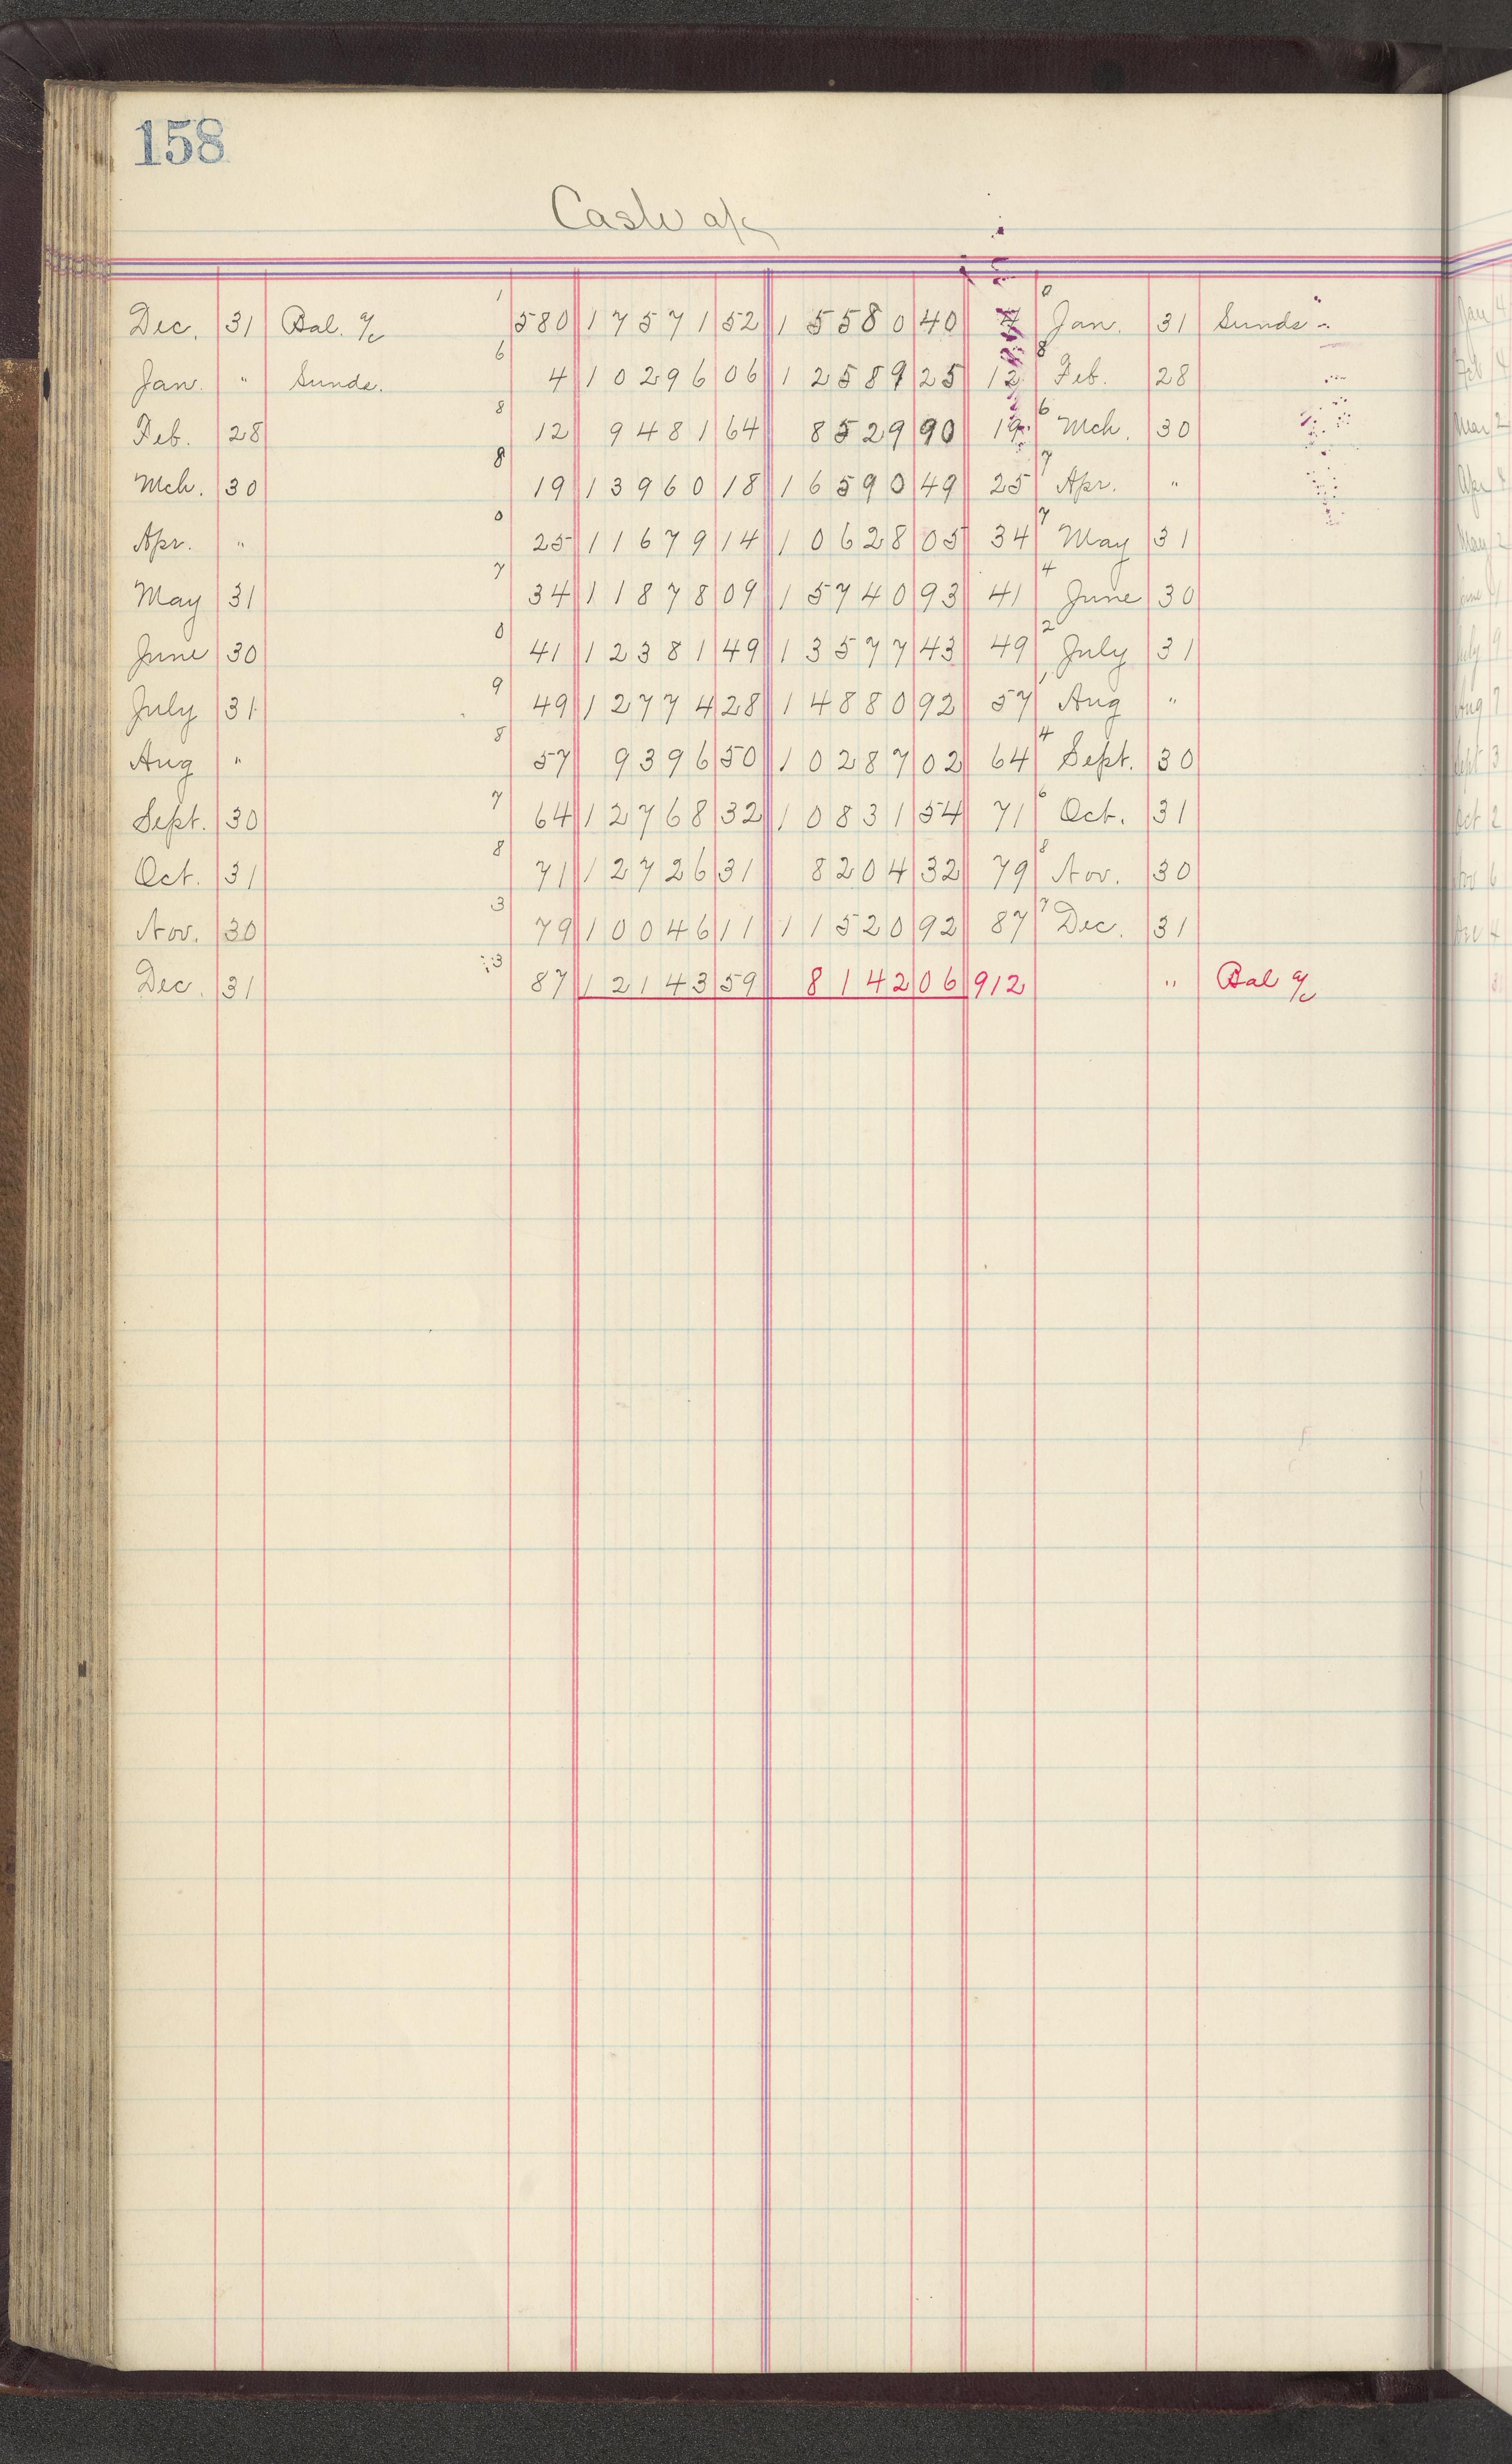 158
Cash a/c
Dec. 31 Bal. a/c 1 580 17571 52 15580 40 4 0 Jan. 31 Sunds
Jan. " Sunds. 6 4 10296 06 12589 25 12 8 Feb. 28
Feb. 28 8 12 9481 64 8529 90 19 6 Mch. 30
Mch. 30 8 19 13960 18 16590 49 25 7 Apr. "
Apr. " 0 25 11679 14 10628 05 34 7 May 31
May 31 7 34 11878 09 15740 93 41 4 June 30
June 30 0 41 12381 49 13577 43 49 2 July 31
July 31 9 49 12774 28 14880 92 57 1 Aug "
Aug " 8 57 9396 50 10287 02 64 4 Sept. 30
Sept. 30 7 64 12768 32 10831 54 71 6 Oct. 31
Oct. 31 8 71 12726 31 8204 32 79 8 Nov. 30
Nov. 30 3 79 10046 11 11520 92 87 7 Dec. 31
Dec. 31 3 87 12143 59 8142 06 912 " Bal a/c